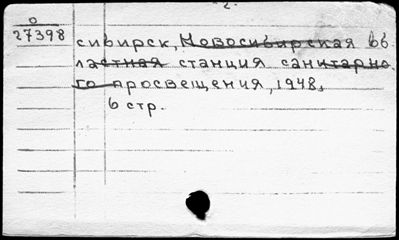 -2-
0
27398
сибирск, Новосибирская об
ластная станция санитарно
го просвещения, 1948.
6 стр.